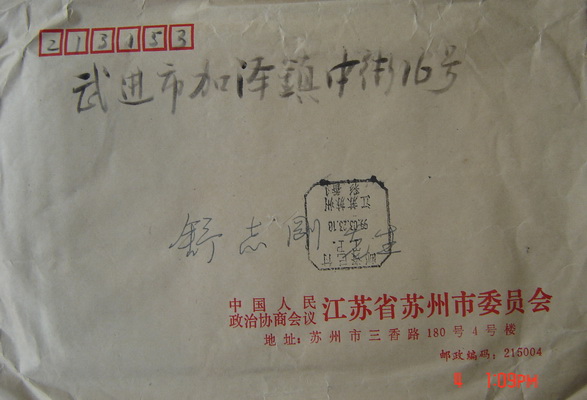 213153
武进市加泽鎮中街16号
舒志刚先生
江苏苏州
99.03.23.10
中国人民
政治协商会议 江苏省苏州市委员会
地址：苏州市三香路180号4号楼
邮政编码：215004
1:09PM